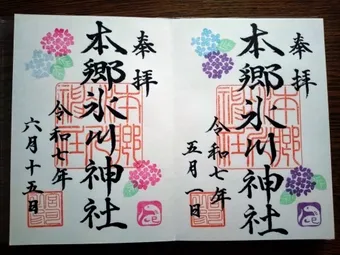 奉拝
本郷氷川神社
令和七年
五月一日
奉拝
本郷氷川神社
令和七年
六月十五日